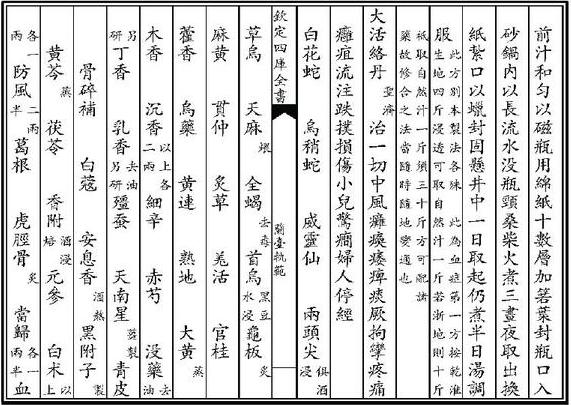 前汁和勻以磁瓶用綿紙十數層加箬葉封瓶口入
砂鍋內以長流水没瓶頸桑柴火煮三晝夜取出換
紙紮口以蠟封固懸井中一日取起仍煮半日湯調
服
此方别本製法各殊 此為血症第一方按乾淮
生地四斤浸透可取自然汁一斤若浙地則十斤
秖取自然汁一斤須三十斤方可配諸
藥故修合之法當隨時隨地變通也
大活絡丹 聖濟 治一切中風癱瘓痿痺痰厥拘攣疼痛
癰疽流注跌撲損傷小兒驚癇婦人停經
白花蛇 烏稍蛇 威靈仙 兩頭尖 俱酒浸
欽定四庫全書 蘭臺軌範
草烏 天麻 煨 全蝎 去毒 首烏 黑豆水浸 龜板 炙
麻黄 貫仲 炙草 羌活 官桂
藿香 烏藥 黄連 熟地 大黄 蒸
木香 沉香 以上各二兩 細辛 赤芍 没藥 去油
另研 丁香 乳香 去油另研 殭蚕 天南星 薑製 青皮
骨碎補 白蔻 安息香 酒熬 黑附子 製
黄芩 蒸 茯苓 香附 酒浸焙 元參 白朮 以上
各一兩 防風 二兩半 葛根 虎脛骨 炙 當歸 各一兩半 血